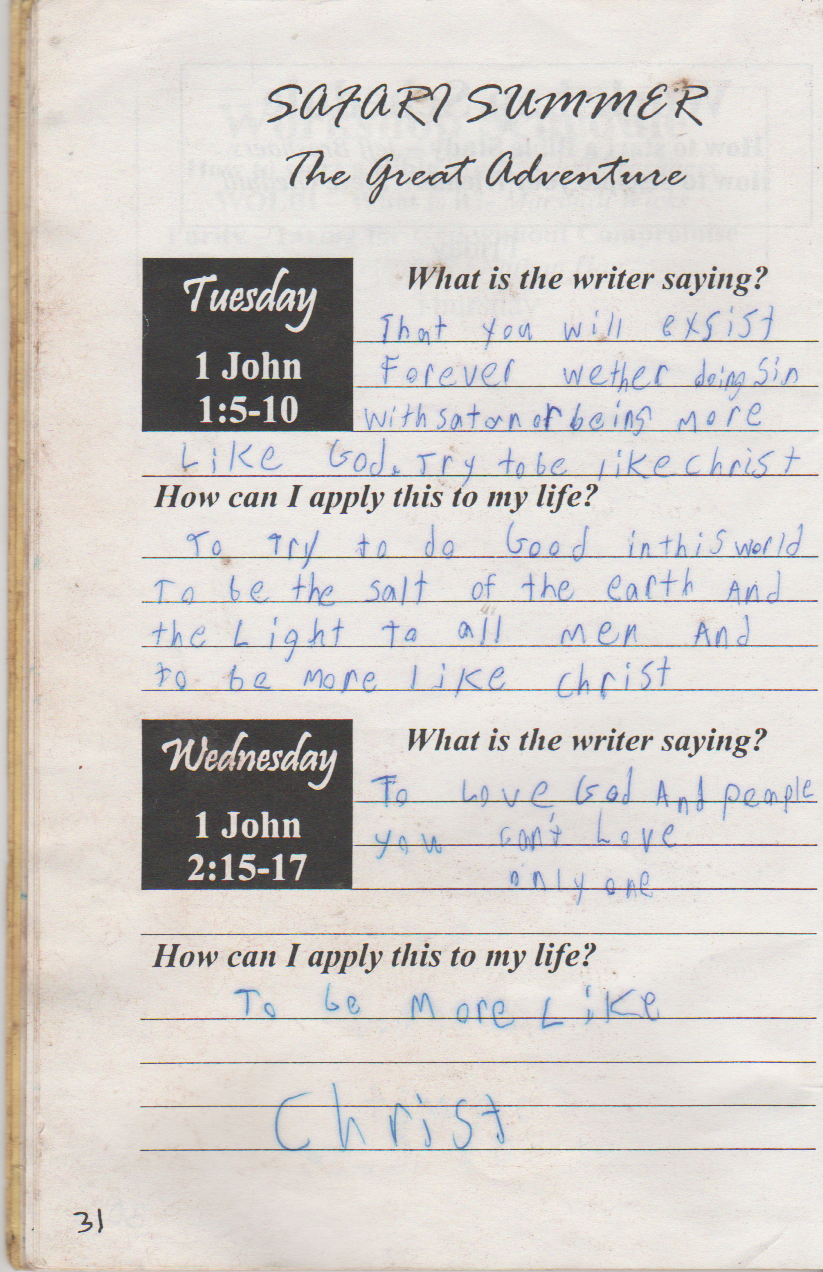 SAFARI SUMMER
The Great Adventure
Tuesday
1 John
1:5-10
What is the writer saying?
That you will exsist
Forever wether doing Sin
with satan or being more
Like God. Try to be like Christ
How can I apply this to my life?
To Try to do Good in this world
To be the salt of the earth And
the Light to all men And
to be more like Christ
Wednesday
1 John
2:15-17
What is the writer saying?
To Love God And people
you can't Love
only one
How can I apply this to my life?
To be More Like
Christ
31